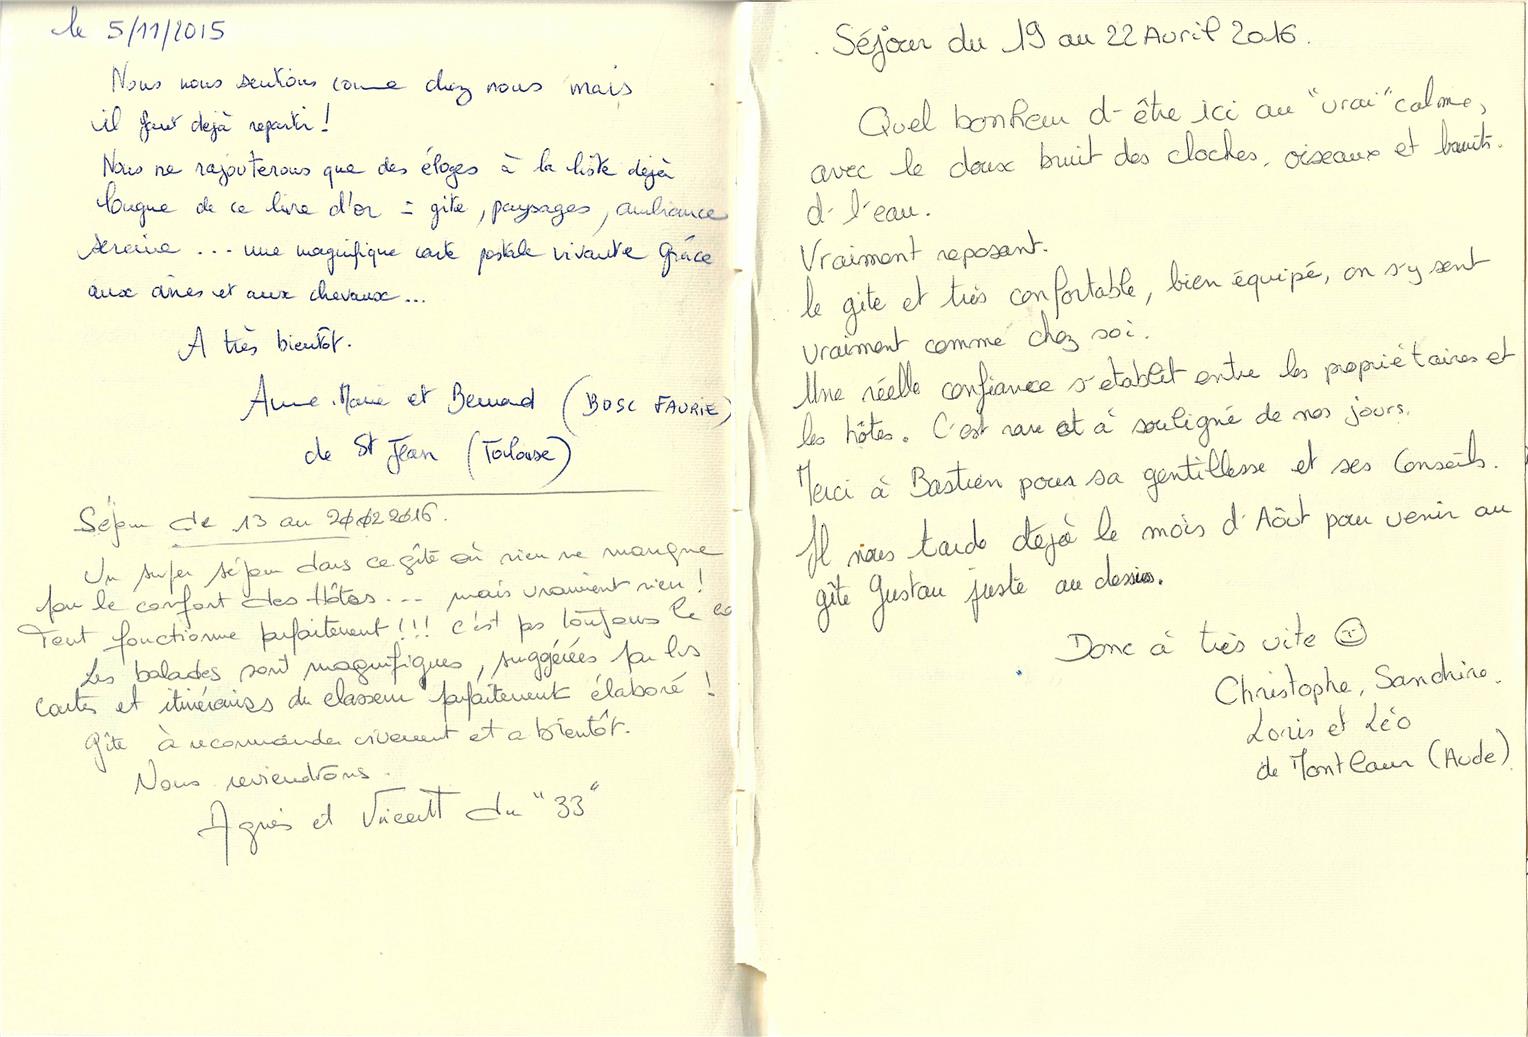 le 5/11/2015
Nous nous sentions comme chez nous mais
il faut dejà repartir !
Nous ne rajouterons que des éloges à la liste dejà
longue de ce livre d'or = gite, paysages, ambiance
sereine ... une magnifique carte postale vivante grâce
aux ânes et aux chevaux ...
A très bientôt.
Anne-Marie et Bernard (BOSC FAURIE)
de St Jean (Toulouse)
Séjour de 13 au 20 02 2016.
Un super séjour dans ce gîte où rien ne manque
pour le confort des Hôtes ... mais vraiment rien !
Tout fonctionne parfaitement !!! c'est pas toujours le
Les balades sont magnifiques, suggérées par les
cartes et itinéraires du classeur parfaitement élaboré !
Gîte à recommander vivement et a bientôt.
Nous reviendrons.
Agnès et Vincent du "33"
Séjour du 19 au 22 Avril 2016.
Quel bonheur d-être ici au "vrai" calme,
avec le doux bruit des cloches, oiseaux et bruits
d-l'eau.
Vraiment reposant.
le gite et très confortable, bien équipé, on s'y sent
vraiment comme chez soi.
Une réelle confiance s'etablit entre les propriétaires et
les hôtes. C'est rare et à souligné de nos jours.
Merci à Bastien pour sa gentillesse et ses Conseils.
Il nous tarde dejà le mois d'Aôut pour venir au
gîte Gustau juste au dessus.
Donc à très vite ☺
Christophe, Sandrine,
Loris et Léo
de Montlaur (Aude)